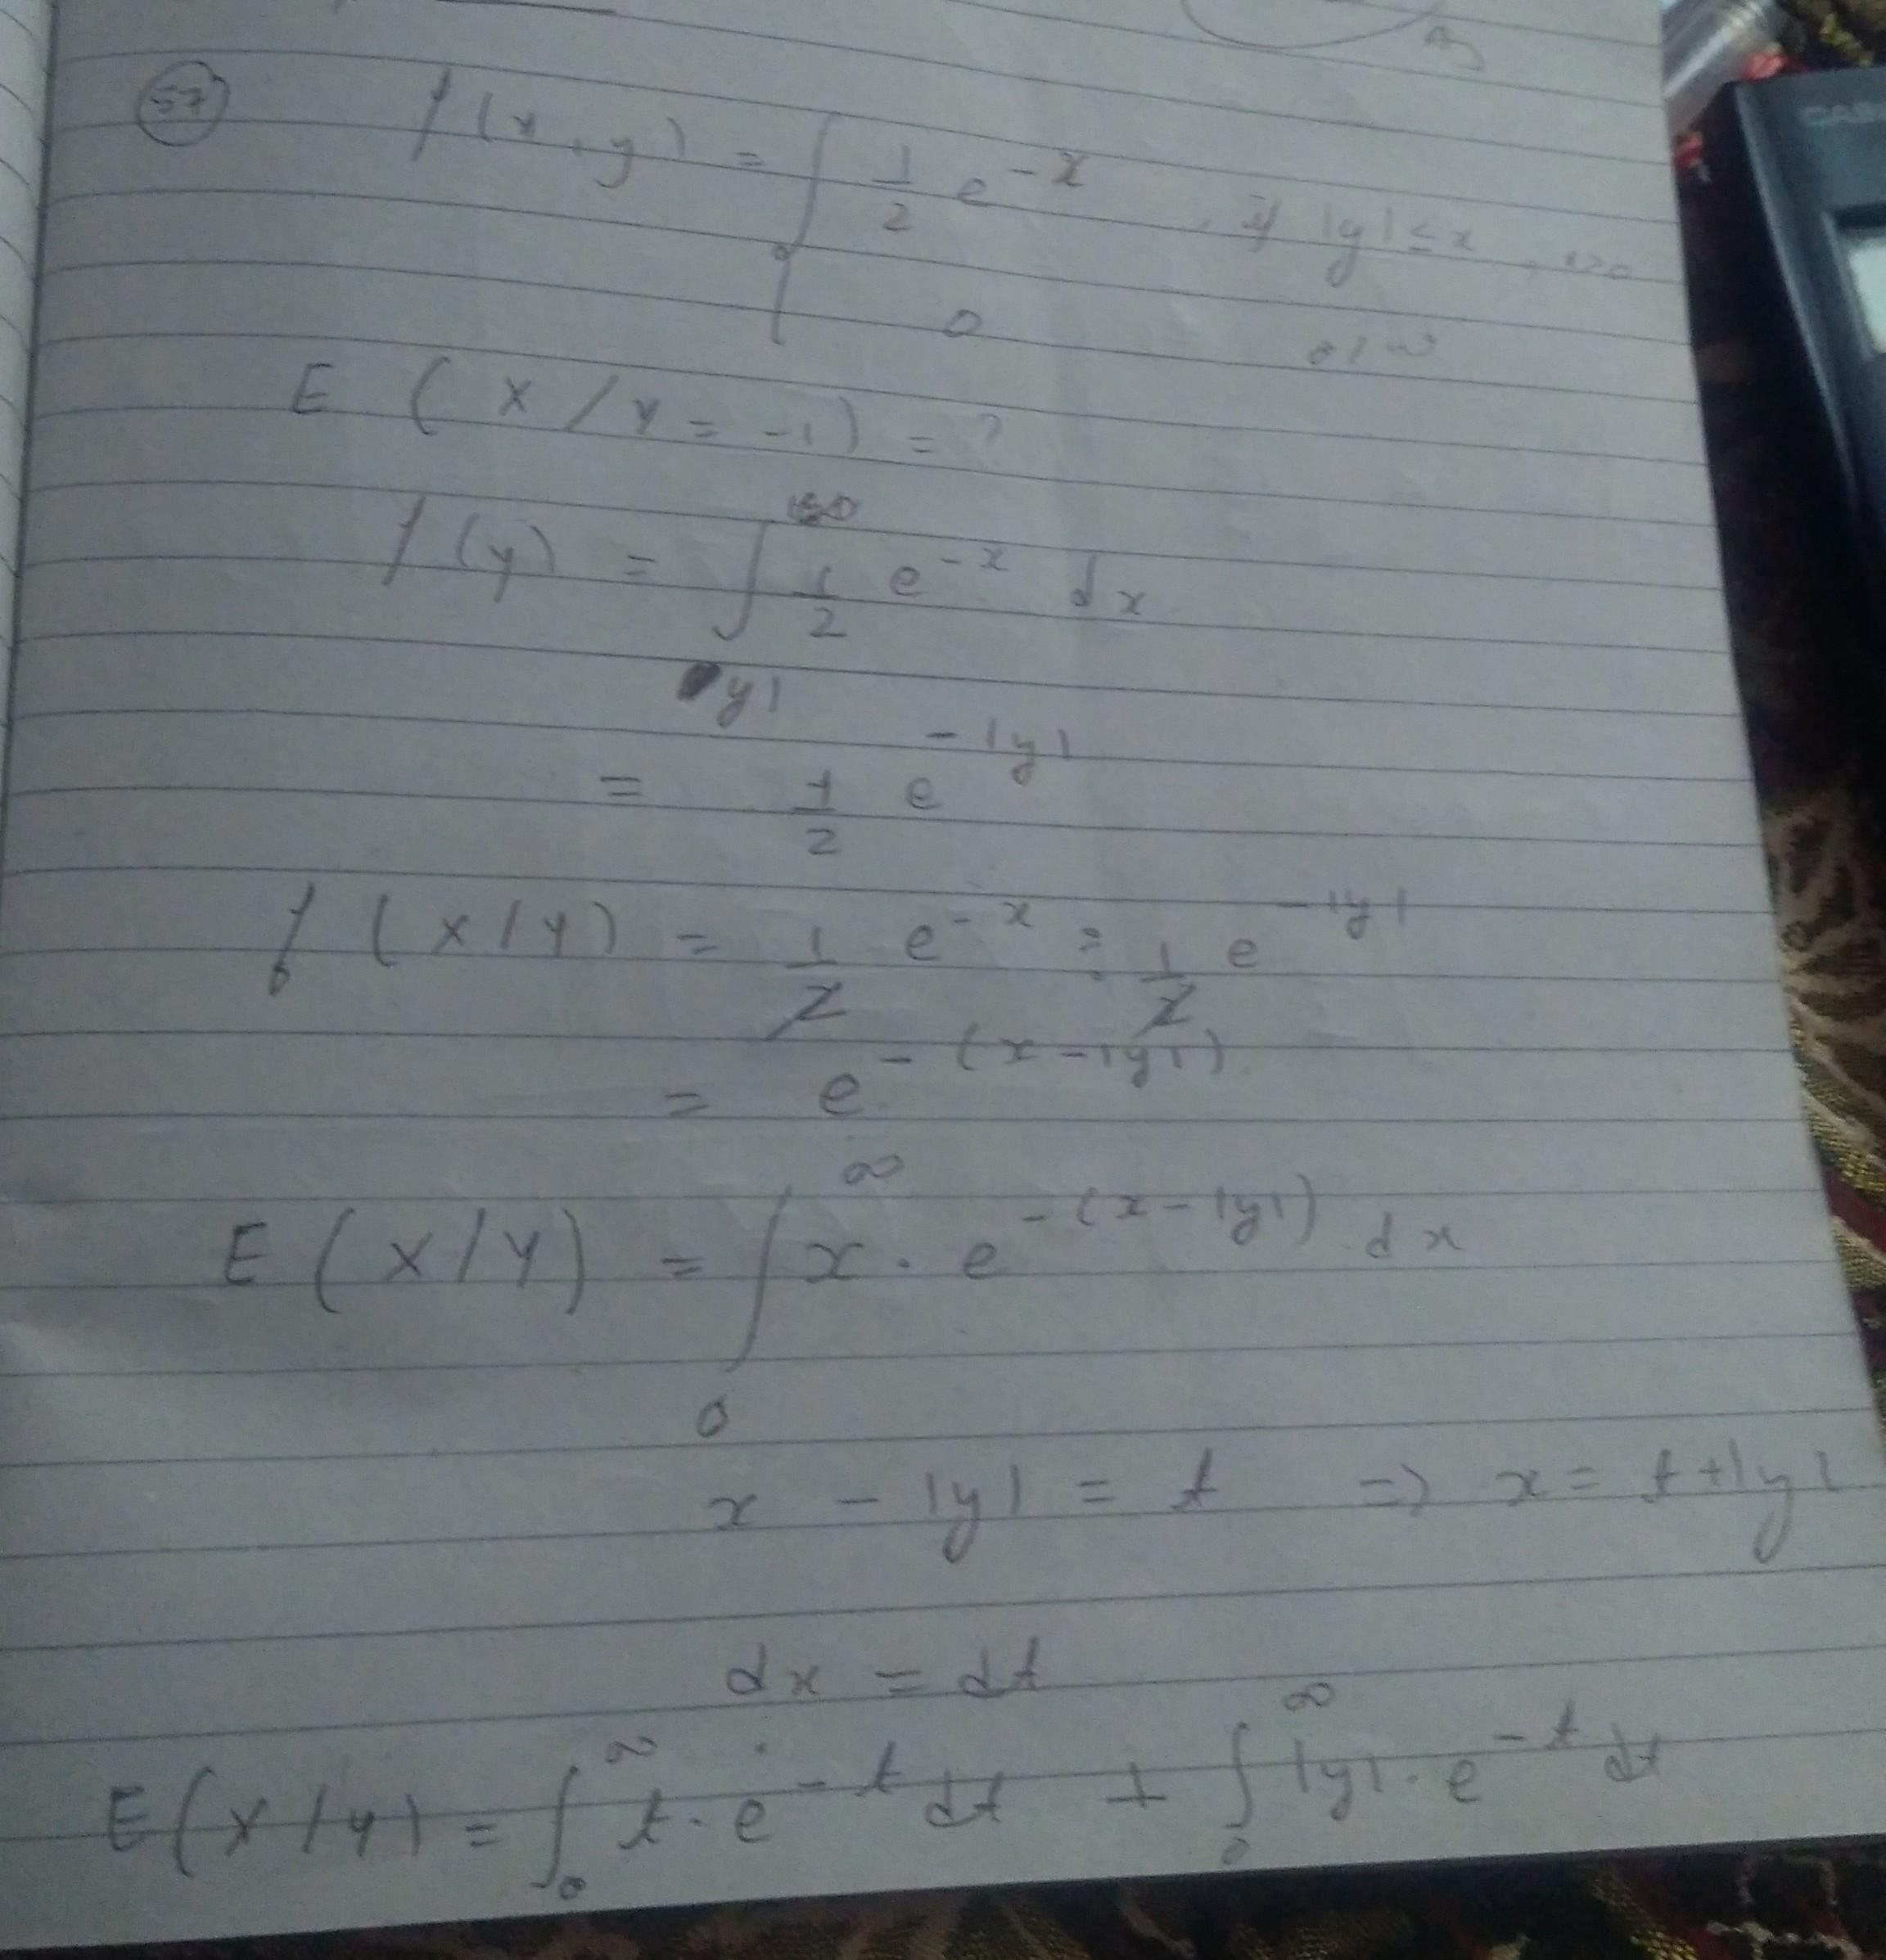 57 f(x,y) = { 1/2 e^{-x} , if |y| ≤ x , x>0
0 o/w
E ( X / Y = -1 ) = ?
f(y) = ∫_{|y|}^{∞} 1/2 e^{-x} dx
= 1/2 e^{-|y|}
f ( X / Y ) = 1/2 e^{-x} ÷ 1/2 e^{-|y|}
= e^{-(x-|y|)}
E ( X / Y ) = ∫_0^∞ x . e^{-(x-|y|)} dx
x - |y| = t ⇒ x = t+|y|
dx = dt
E(X/Y) = ∫_0^∞ t . e^{-t} dt + ∫_0^∞ |y| . e^{-t} dt